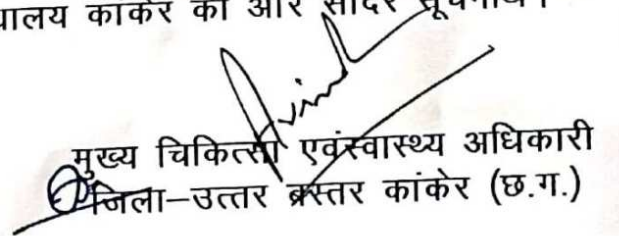 कांकेर की ओर सादर सूचनार्थ।
Avind
मुख्य चिकित्सा एवंस्वास्थ्य अधिकारी
जिला–उत्तर बस्तर कांकेर (छ.ग.)